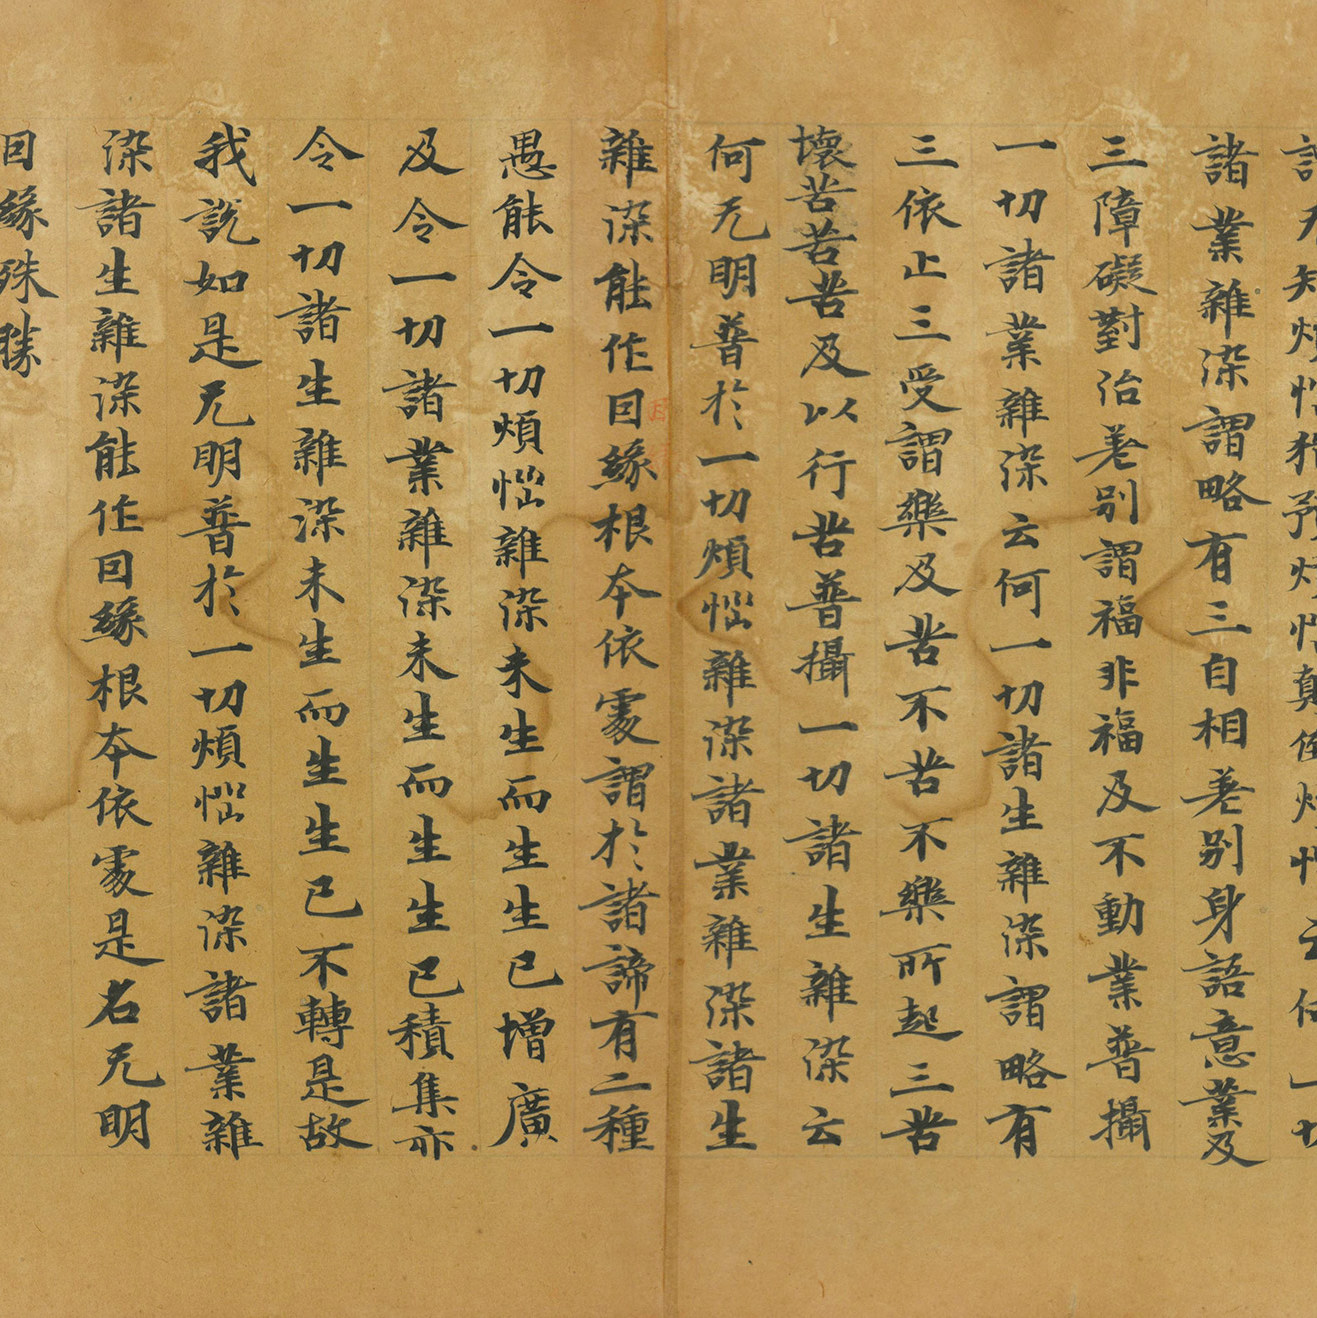 謂无知煩惱猶預煩惱顛倒煩惱云何一切
諸業雜染謂略有三自相差别身語意業及
三障礙對治差别謂福非福及不動業普攝
一切諸業雜染云何一切諸生雜染謂略有
三依止三受謂樂及苦不苦不樂所起三苦
壞苦苦苦及以行苦普攝一切諸生雜染云
何无明普於一切煩惱雜染諸業雜染諸生
雜染能作因緣根本依處謂於諸諦有二種
愚能令一切煩惱雜染未生而生生已增廣
及令一切諸業雜染未生而生生已積集亦
令一切諸生雜染未生而生生已不轉是故
我説如是无明普於一切煩惱雜染諸業雜
染諸生雜染能作因緣根本依處是名无明
因緣殊勝